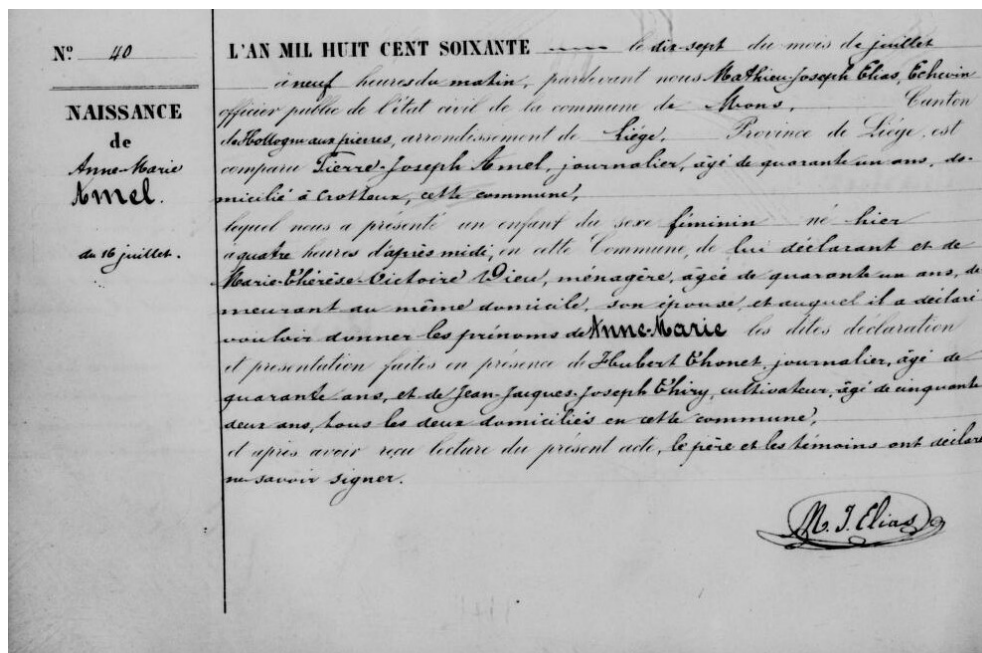 N° 40
NAISSANCE
de
Anne-Marie
Amel.
du 16 juillet.
L'AN MIL HUIT CENT SOIXANTE le dix-sept du mois de juillet
à neuf heures du matin, pardevant nous Mathieu-Joseph Elias, Echevin
officier public de l'état civil de la commune de Mons, Canton
de Hollogne aux pierres, arrondissement de Liége, Province de Liége, est
comparu Pierre-Joseph Amel, journalier, âgé de quarante un ans, do-
micilié à Crotteux, cette commune,
lequel nous a présenté un enfant du sexe féminin né hier
à quatre heures d'après midi, en cette Commune, de lui déclarant et de
Marie-Thérèse-Victoire Dieu, ménagère, âgée de quarante un ans, de
meurant au même domicile, son épouse, et auquel il a déclaré
vouloir donner les prénoms de Anne-Marie les dites déclaration
et présentation faites en présence de Hubert Thonet, journalier, âgé de
quarante ans, et de Jean-Jacques-Joseph Thiry, cultivateur, âgé de cinquante
deux ans, tous les deux domiciliés en cette commune,
et après avoir reçu lecture du présent acte, le père et les témoins ont déclaré
ne savoir signer.
M. J. Elias